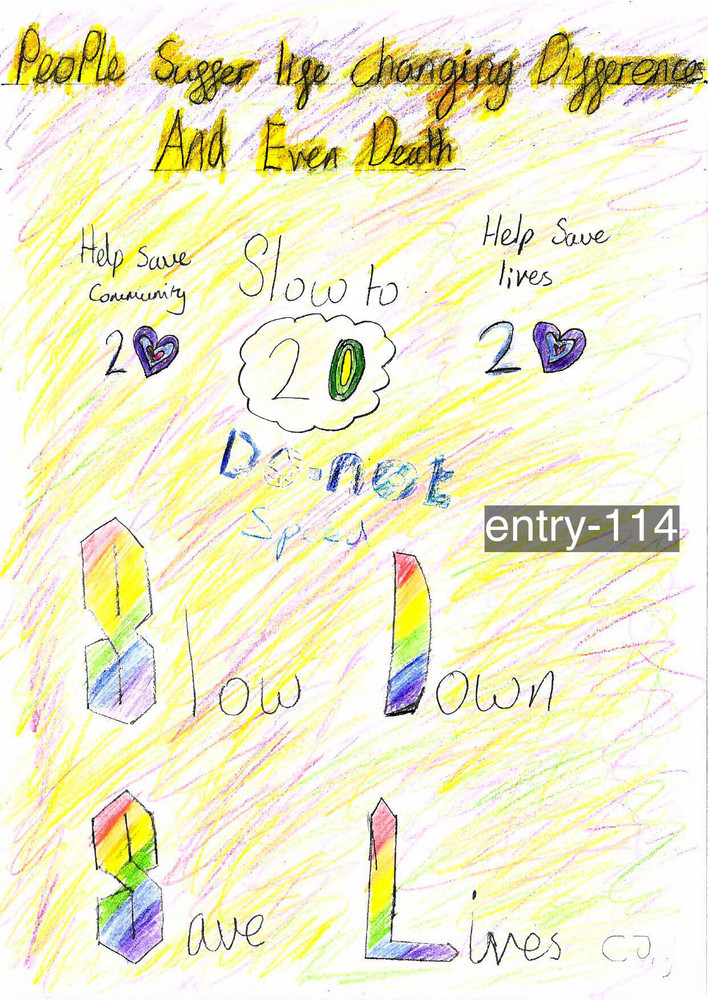 People Suffer life changing Differences
And Even Death
Help Save
Community
20
Slow to
20
Help Save
lives
20
Do-not
Speed
entry-114
Slow Down
Save Lives
CJ